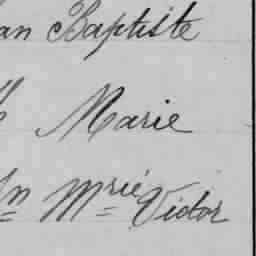 an Baptiste
Marie
Mrié Victor